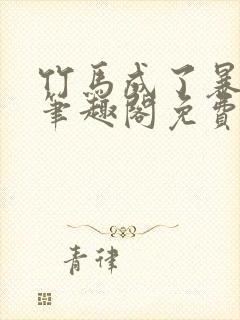 竹马成了暴
笔趣阁免费
青律